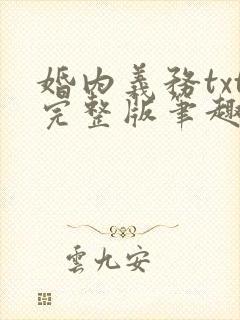 婚内義務txt
完整版筆趣
雲九安